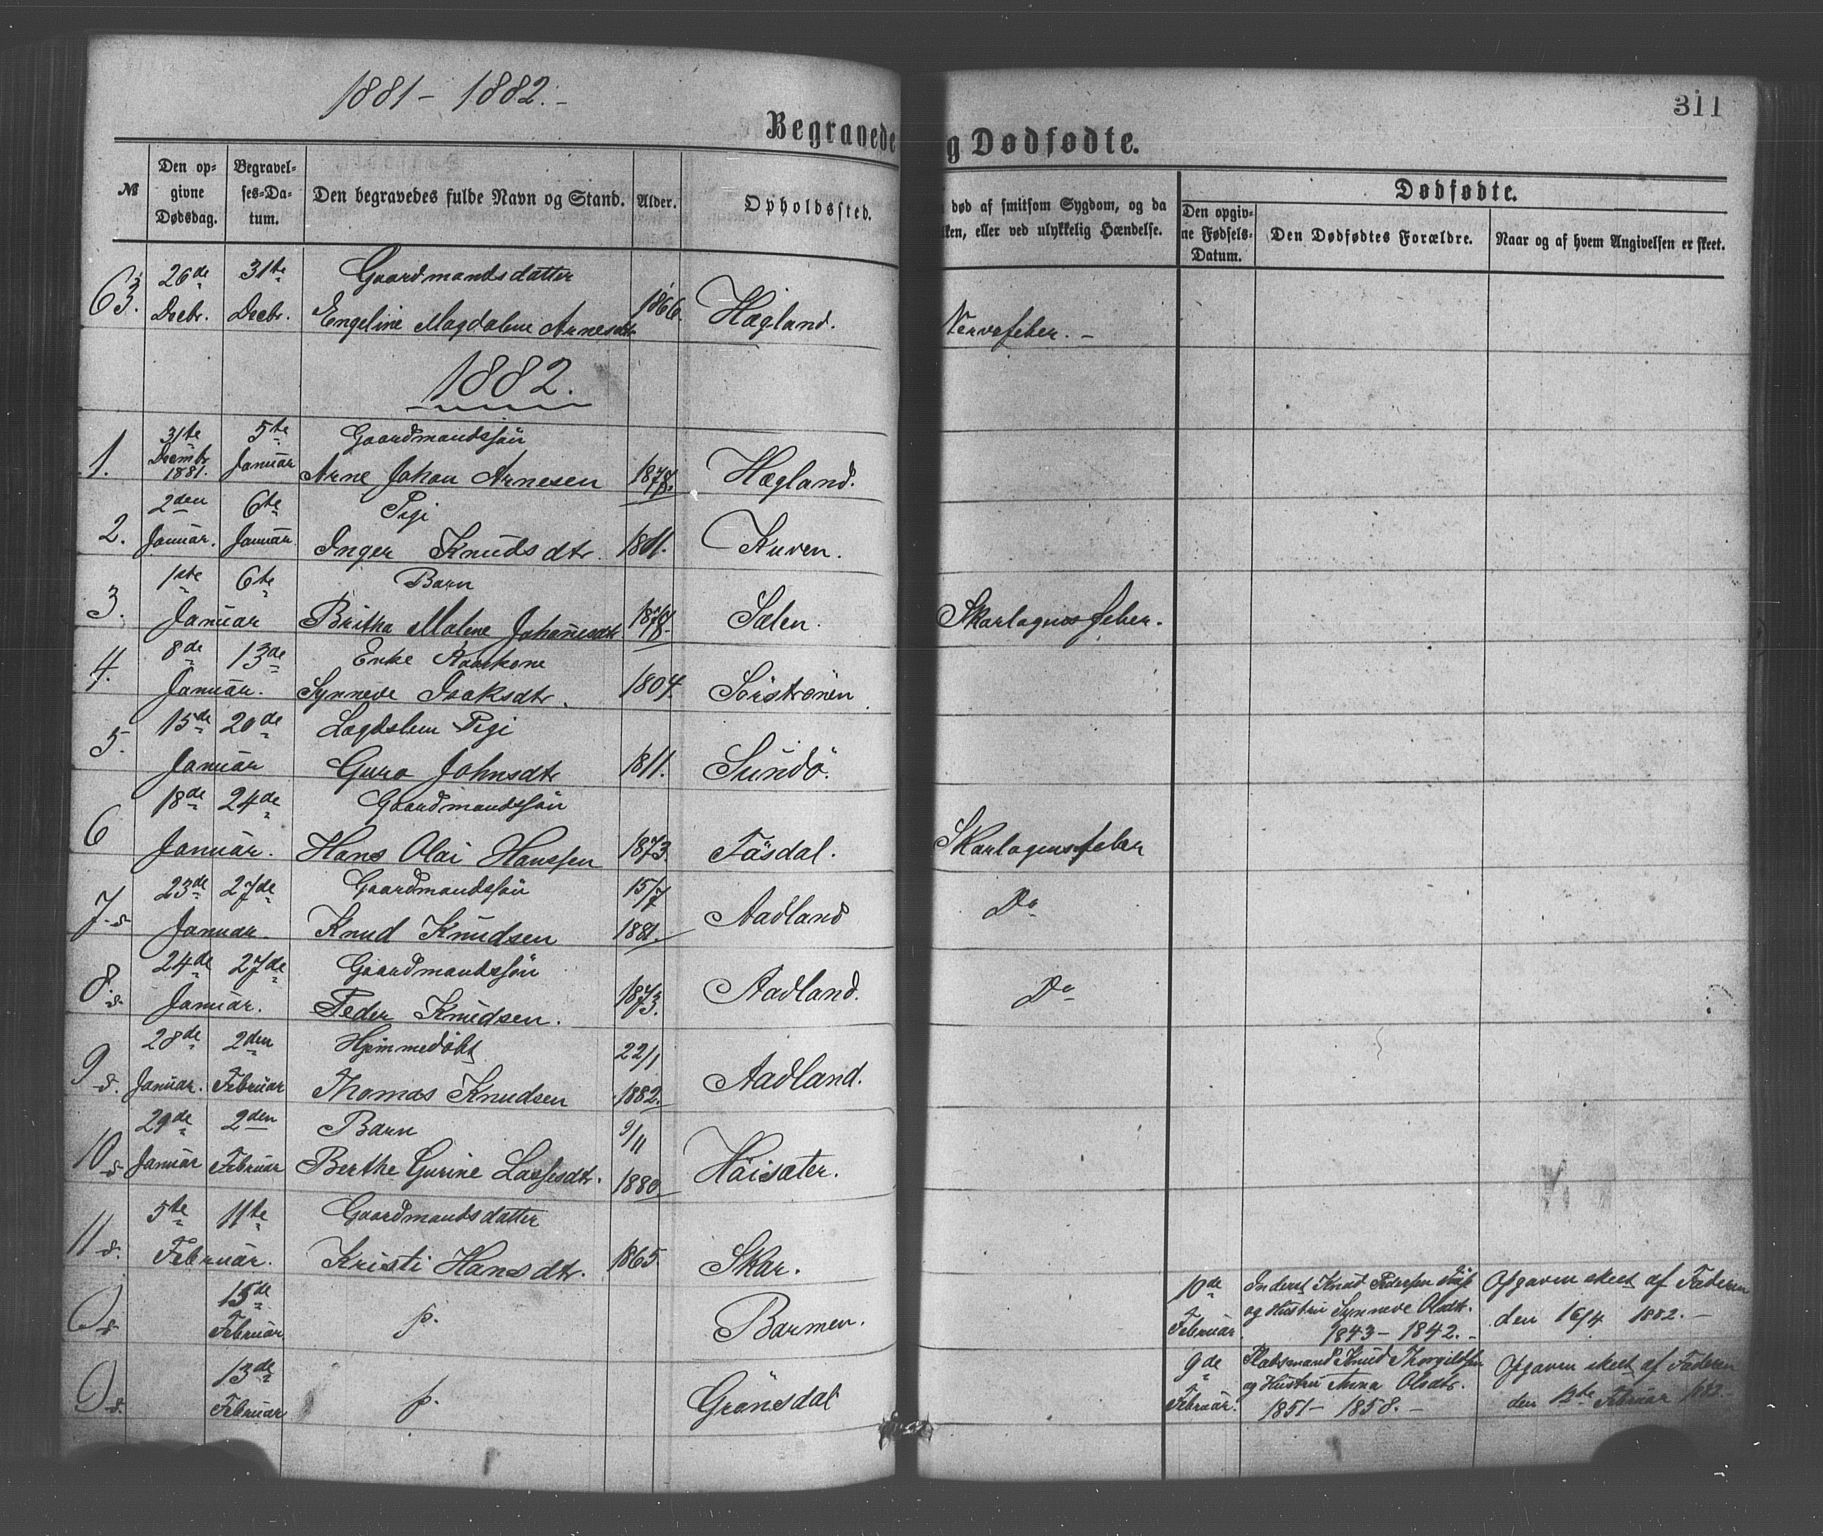 1881 - 1882. -
311
Begravede
g Dødfødte.
№
Den op-
givne
Dødsdag.
Begravel-
ses-Da-
tum.
Den begravedes fulde Navn og Stand.
Alder.
Opholdssted.
død af smitsom Sygdom, og da
ken, eller ved ulykkelig Hændelse.
Dødfødte.
Den opgiv-
ne Fødsels-
Datum.
Den Dødfødtes Forældre.
Naar og af hvem Angivelsen er skeet.
63. 26de Decbr. 31te Decbr. Gaardmandsdatter
Engeline Magdalene Arnesdtr 1866. Hægland. Nervefeber. -
1882.
1. 31te Decembr 1881. 5te Januar Gaardmandssøn
Arne Johan Arnesen 1878. Hægland.
2. 2den Januar. 6te Januar Pigi
Inger Knudsdtr. 1801. Kuven.
3. 1ste 6te Januar Barn
Britha Malene Johannesdtr 1878. Sælen. Skarlagensfeber.
4. 8de 13de Januar. Enke Kaarkone
Synneve Isaksdtr. 1804. Söiströnen
5. 15de 20de Januar Lægdslem Pigi
Guro Johnsdtr 1811. Sundö.
6 18de 24de Januar. Gaardmandssøn
Hans Olai Hanssen 1873. Tösdal. Skarlagensfeber
7. d. 23de 27de Januar. Gaardmandssøn
Knud Knudsen 15/7 1881. Aadland Do
8. d. 24de 27de Januar. Gaardmandssøn
Peder Knudsen. 1873. Aadland. Do
9 d. 28de Januar. 2den Februar Hjemmedöbt
Thomas Knudsen 22/1 1882. Aadland.
10 d. 29de Januar 2den Februar Barn
Berthe Gurine Lassesdtr. 9/11 1880 Höisæter.
11 d. 5te 11te Februar. Gaardmandsdatter
Kristi Hansdtr. 1865. Skar.
D d. 15de Februar p. Barmen. 10de Februar Inderst Knud Pedersen
og Hustru Synneve Olsdtr.
1843 - 1842. -
Opgaven skeet af Faderen
den 16/4 1882. -
D d. 13de Februar p. Grönsdal 9de Februar. Pladsmand Knud Thorgildsen
og Hustru Anna Olsdtr.
1851 - 1858. -
Opgaven skeet af Faderen
den 13te Februar 1882. -